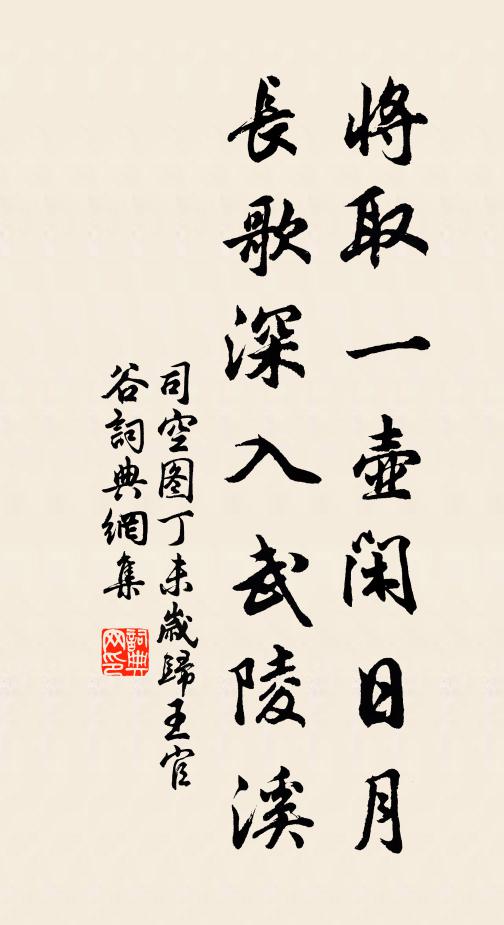 將取一壺閑日月
長歌深入武陵溪
司空图丁未歲歸王官
谷詞典網集
詞典网印